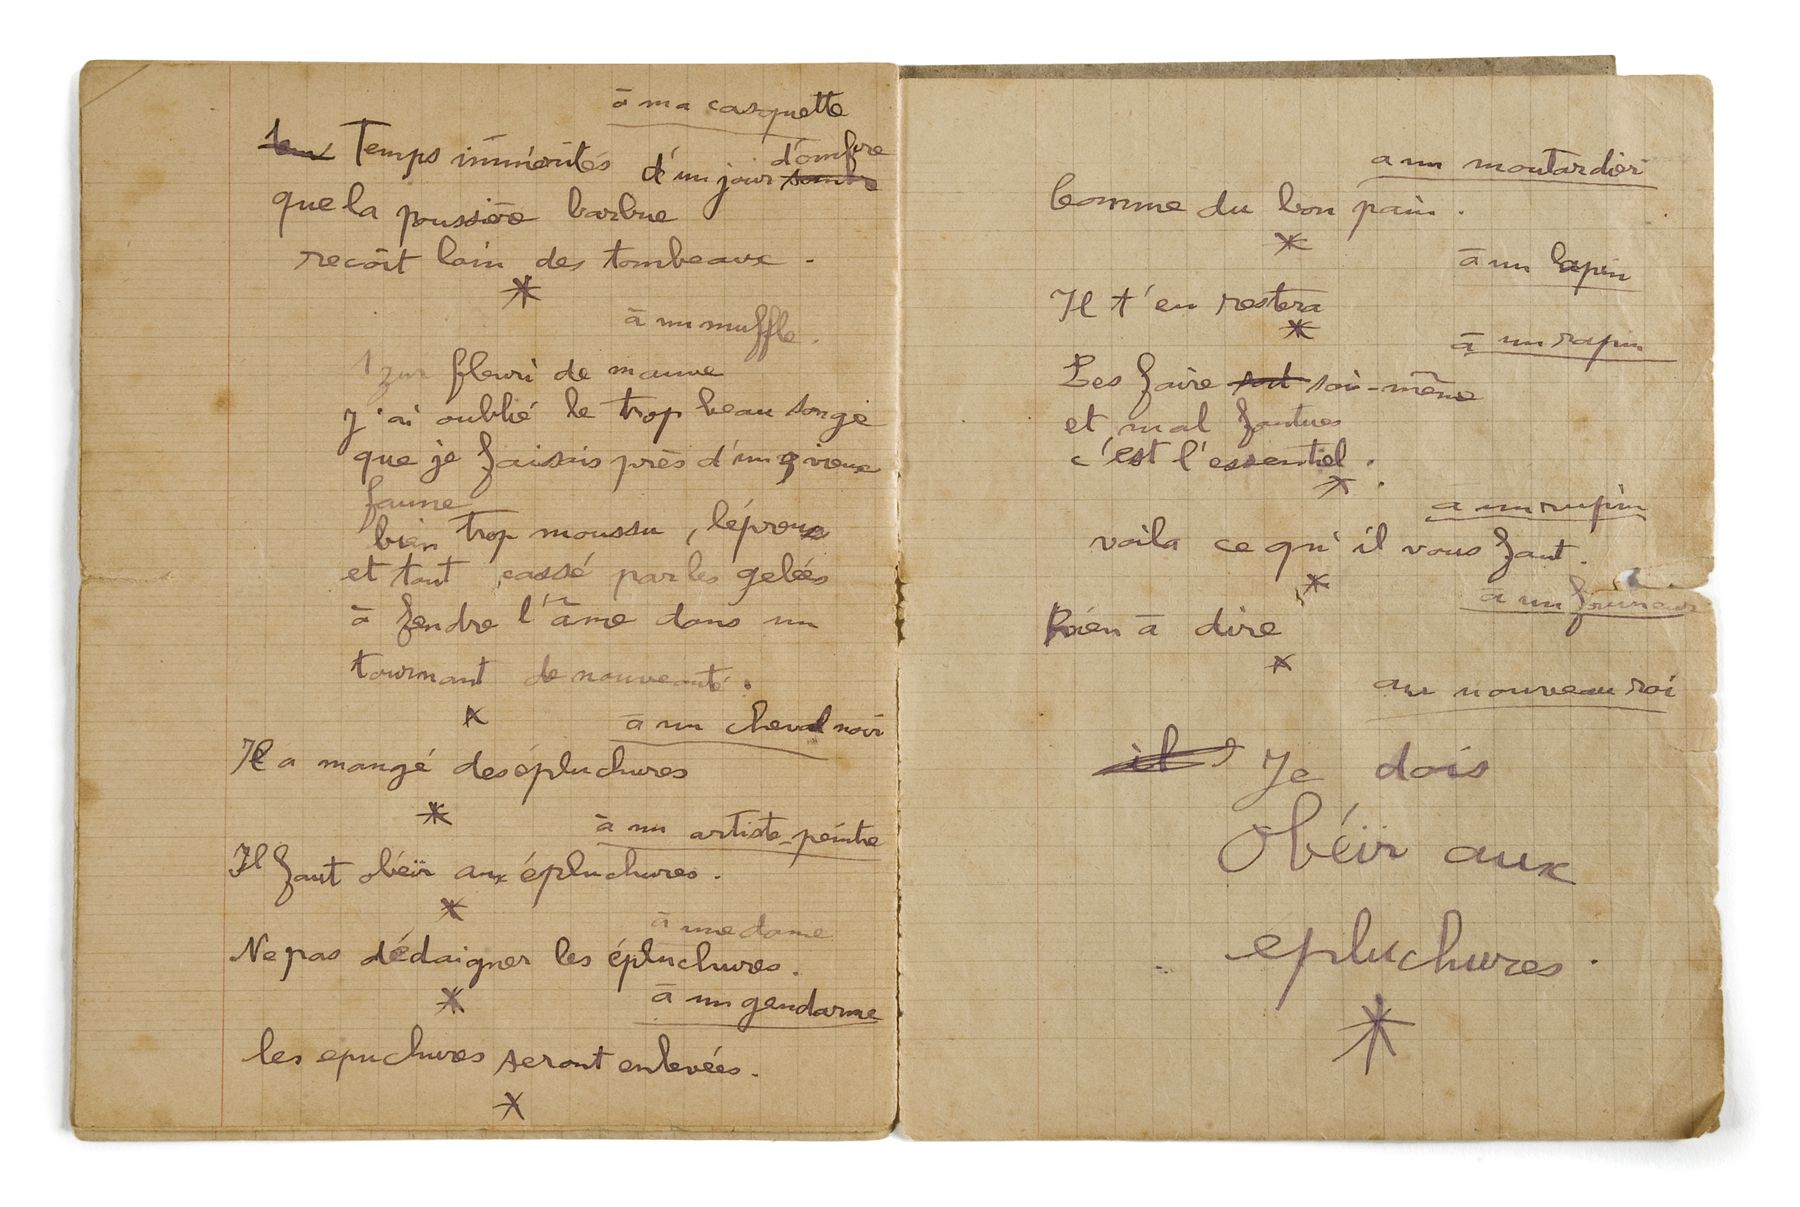 à ma casquette
Temps immérités d'un jour d'ombre sombre
que la poussière barbue
reçoit loin des tombeaux.
à un muffle.
fleuri de mauve
J'ai oublié le trop beau songe
que je faisais près d'un vieux
faune
bien trop moussu, lépreux
et tout cassé par les gelées
à fendre l'âme dans un
tournant de nouveauté.
à un cheval noir
Il a mangé des épluchures
à un artiste-peintre
Il faut obéïr aux épluchures.
à une dame
Ne pas dédaigner les épluchures.
à un gendarme
les epuchures seront enlevées.
a un moutardier
Comme du bon pain.
à un lapin
Il t'en restera
à un rapin
Les faire soi-même
et mal foutues
c'est l'essentiel.
a un rupin
voila ce qu'il vous faut.
à un
Rien à dire
au nouveau roi
il Je dois
Obéir aux
epluchures.